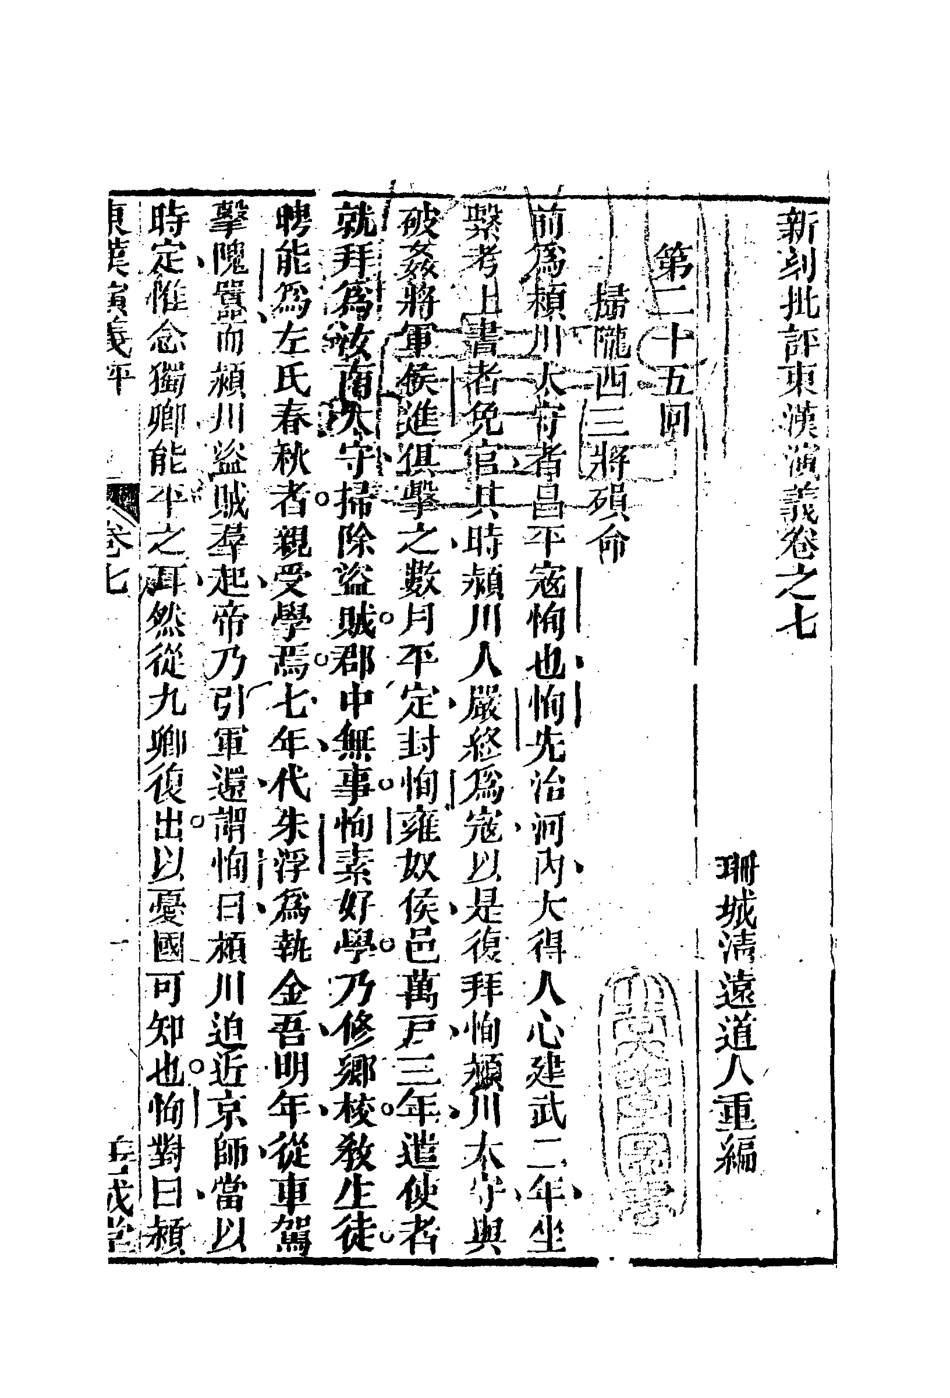 新刻批評東漢演義卷之七
珊城清遠道人重編
第二十五囘
掃隴西三將殞命
前爲潁川太守者昌平寇恂也恂先治河內大得人心建武二年坐
繫考上書者免官其時潁川人嚴終爲寇以是復拜恂潁川太守與
破姦將軍侯進俱擊之數月平定封恂雍奴侯邑萬戸三年遣使者
就拜爲汝南太守掃除盜賊郡中無事恂素好學乃修鄉校敎生徒
聘能爲左氏春秋者親受學焉七年代朱浮爲執金吾明年從車駕
擊隗囂而潁川盜賊羣起帝乃引軍還謂恂曰潁川迫近京師當以
時定惟念獨卿能平之耳然從九卿復出以憂國可知也恂對曰潁
東漢演義評 卷七 一